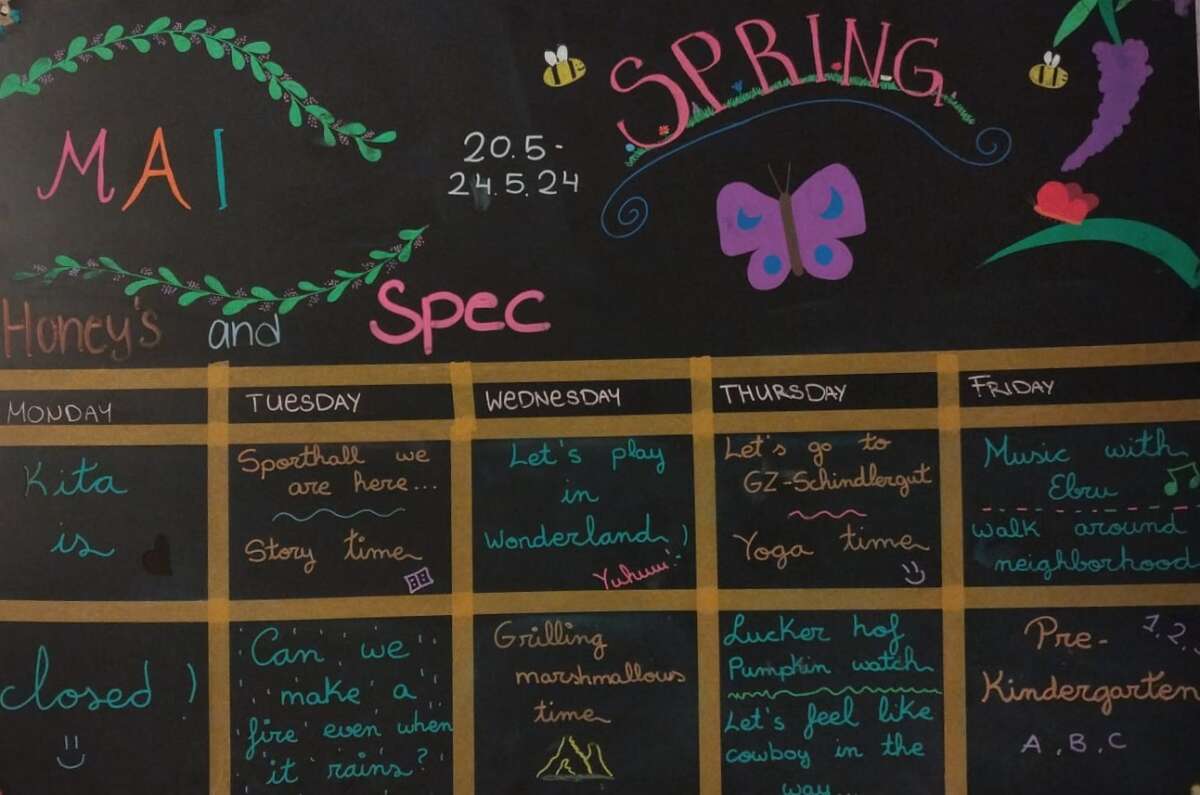 SPRING
MAI
20.5-
24.5.24
Honey's and Spec
MONDAY
TUESDAY
WEDNESDAY
THURSDAY
FRIDAY
Kita
is
Sporthall we
are here...
Story time
Let's play
in
wonderland!
Yuhuuu!
Let's go to
GZ-Schindlergut
Yoga time
Music with
Ebru
walk around
neighborhood
closed!
Can we
make a
fire even when
it rains?
Grilling
marshmallous
time
Lucker hof
Pumpkin watch
Let's feel like
cowboy in the
way...
Pre-
Kindergarten
1, 2,
A, B, C